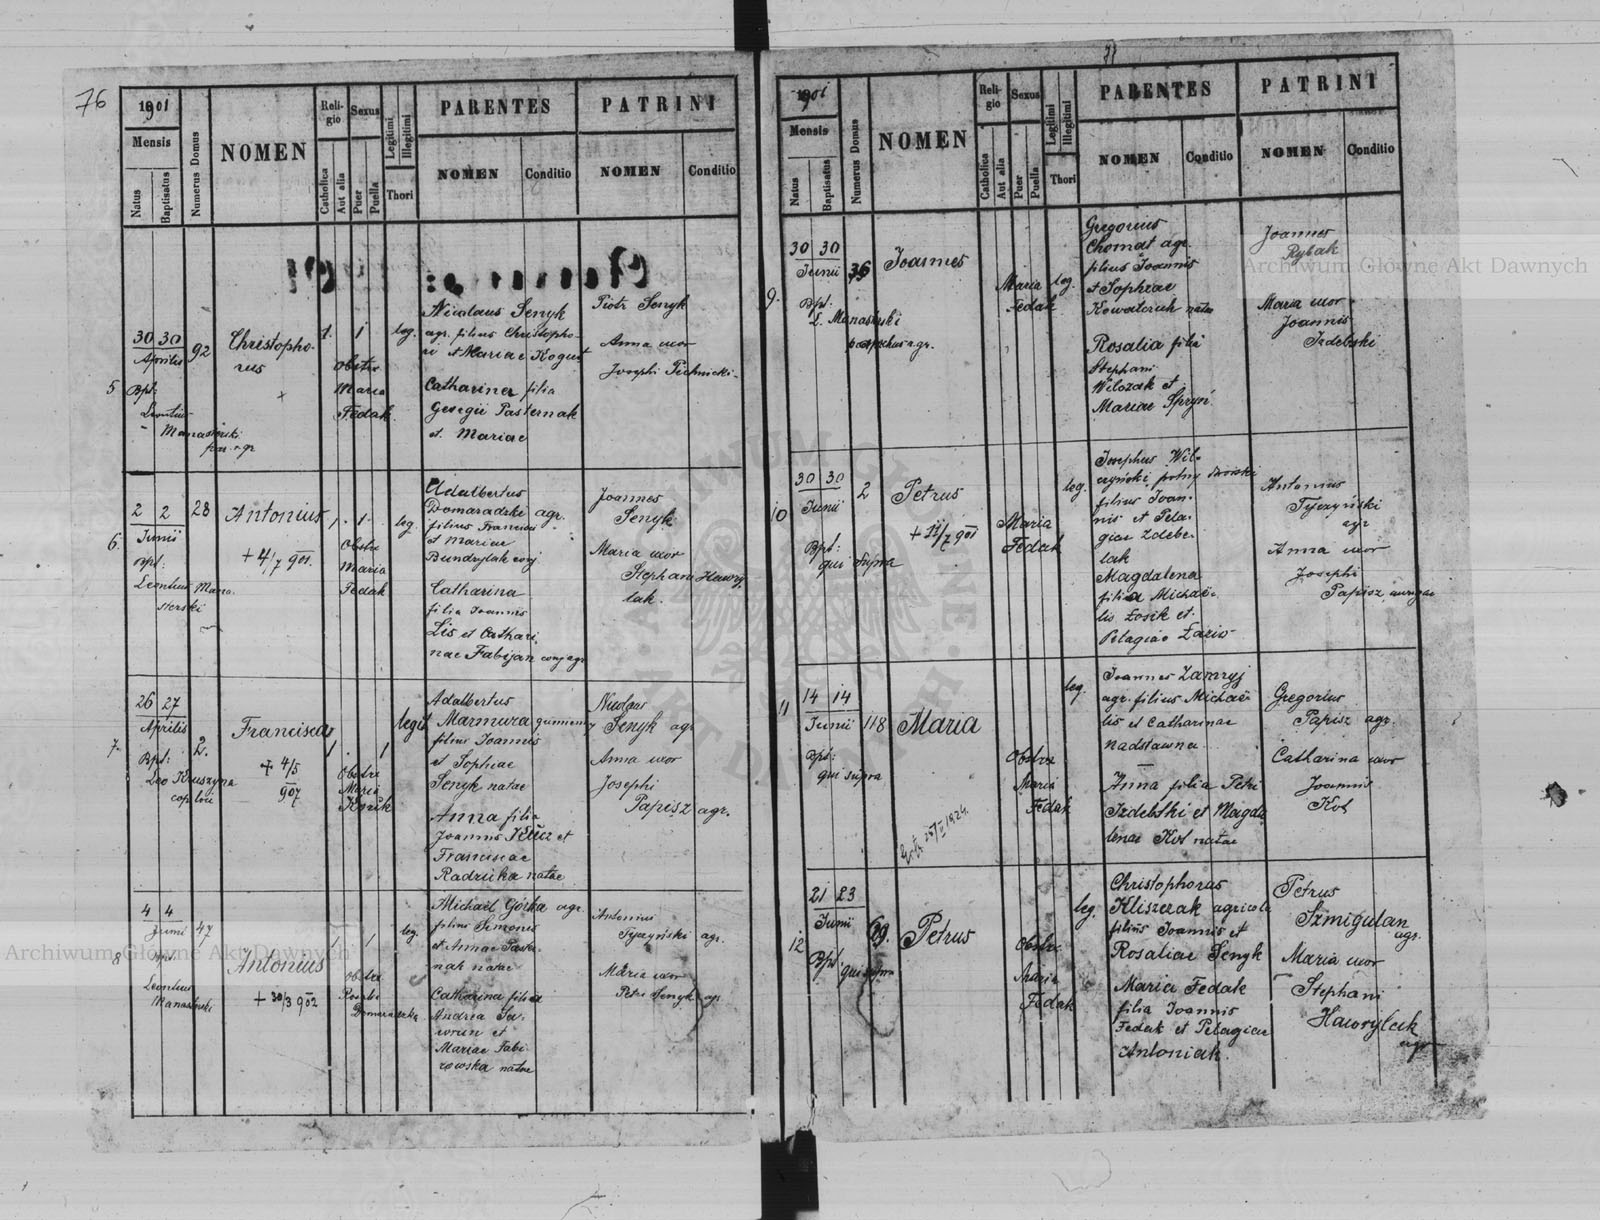 76
1901
Mensis
Natus
Baptisatus
Numerus Domus
NOMEN
Religio
Catholica
Aut alia
Sexus
Puer
Puella
Legitimi
Illegitimi
Thori
PARENTES
NOMEN
Conditio
PATRINI
NOMEN
Conditio
5
30 30
Aprilis
92
Bpt:
Leontius
Manasterski
Christopho-
rus
1.
1
Obstx
Maria
Fedak
leg.
Nicolaus Senyk
agr. filius Christopho-
ri et Mariae Kogut
Catharina filia
Georgii Pasternak
et Mariae
Piotr Senyk
Anna uxor
Josephi Pichnicki
6.
2 2
Junii
28
Bpt:
Leontius Mana-
sterski
Antonius
+ 4/7 901.
1. 1.
Obstx
Maria
Fedak
leg.
Adalbertus
Domaradzki agr.
filius Francisci
et Mariae
Bundzylak conj
Catharina
filia Joannis
Lis et Cathari-
nae Fabijan conj agr
Joannes
Senyk
Maria uxor
Stephani Hawry-
lak.
7.
26 27
Aprilis
2.
Bpt:
Leo Kruszyna
Francisca
+ 4/5
907
1. 1
Obstx
Maria
legit
Adalbertus
Marmura gumienny
filius Joannis
et Sophiae
Senyk natae
Anna filia
Joannis Klucz et
Franciscae
Radzika natae
Nicolaus
Senyk agr
Anna uxor
Josephi
Papisz agr.
8
4 4
Junii
47
Bpt:
Leontius
Manasterski
Antonius
+ 30/3 902
1 1
Obstx
leg.
Michaël Górka agr.
filius Simonis
et Annae Paster-
nak natae
Catharina filia
Andrea
et
Mariae Fabi-
rowska natae
Antonius
Tyczyński agr.
Maria uxor
Petri Senyk agr
1901
Mensis
Natus
Baptisatus
Numerus Domus
NOMEN
Religio
Catholica
Aut alia
Sexus
Puer
Puella
Legitimi
Illegitimi
Thori
PARENTES
NOMEN
Conditio
PATRINI
NOMEN
Conditio
9.
30 30
Junii
36
Bpt:
L. Manasterski
Joannes
Maria
Fedak
leg.
Gregorius
Chomat agr.
filius Joannis
et Sophiae
Kowalczuk natae
Rosalia filia
Stephani
Wilczak et
Mariae Spryń
Joannes
Rybak
Maria uxor
Joannis
Izdebski
10
30 30
Junii
2
Bpt:
qui supra
Petrus
+ 11/7 901
Maria
Fedak
leg.
Josephus Wil-
czyński, polny dworski
filius Joan-
nis et Pela-
giae Zdebe-
lak
Magdalena
filia Michaë-
lis Łosik et
Pelagiae Łazir
Antonius
Tyczyński
agr
Anna uxor
Josephi
Papisz, aurigae
11
14 14
Junii
118
Bpt:
qui supra
Maria
Obstx
Maria
Fedak
leg.
Joannes Zamryj
agr. filius Michaë-
lis et Catharinae
Nadstawna
Anna filia Petri
Izdebski et Magda-
lenae Kot natae
Gregorius
Papisz agr.
Catharina uxor
Joannis
Kot
12
21 23
Junii
69.
Bpt.
qui supra
Petrus
Obstx.
Maria
Fedak
leg.
Christophorus
Kliszczak agricola
filius Joannis et
Rosaliae Senyk
Maria Fedak
filia Joannis
Fedak et Pelagiae
Antoniak.
Petrus
Szmigulan
agr.
Maria uxor
Stephani
Hawrylak
agr
Archiwum Główne Akt Dawnych
Archiwum Główne Akt Dawnych